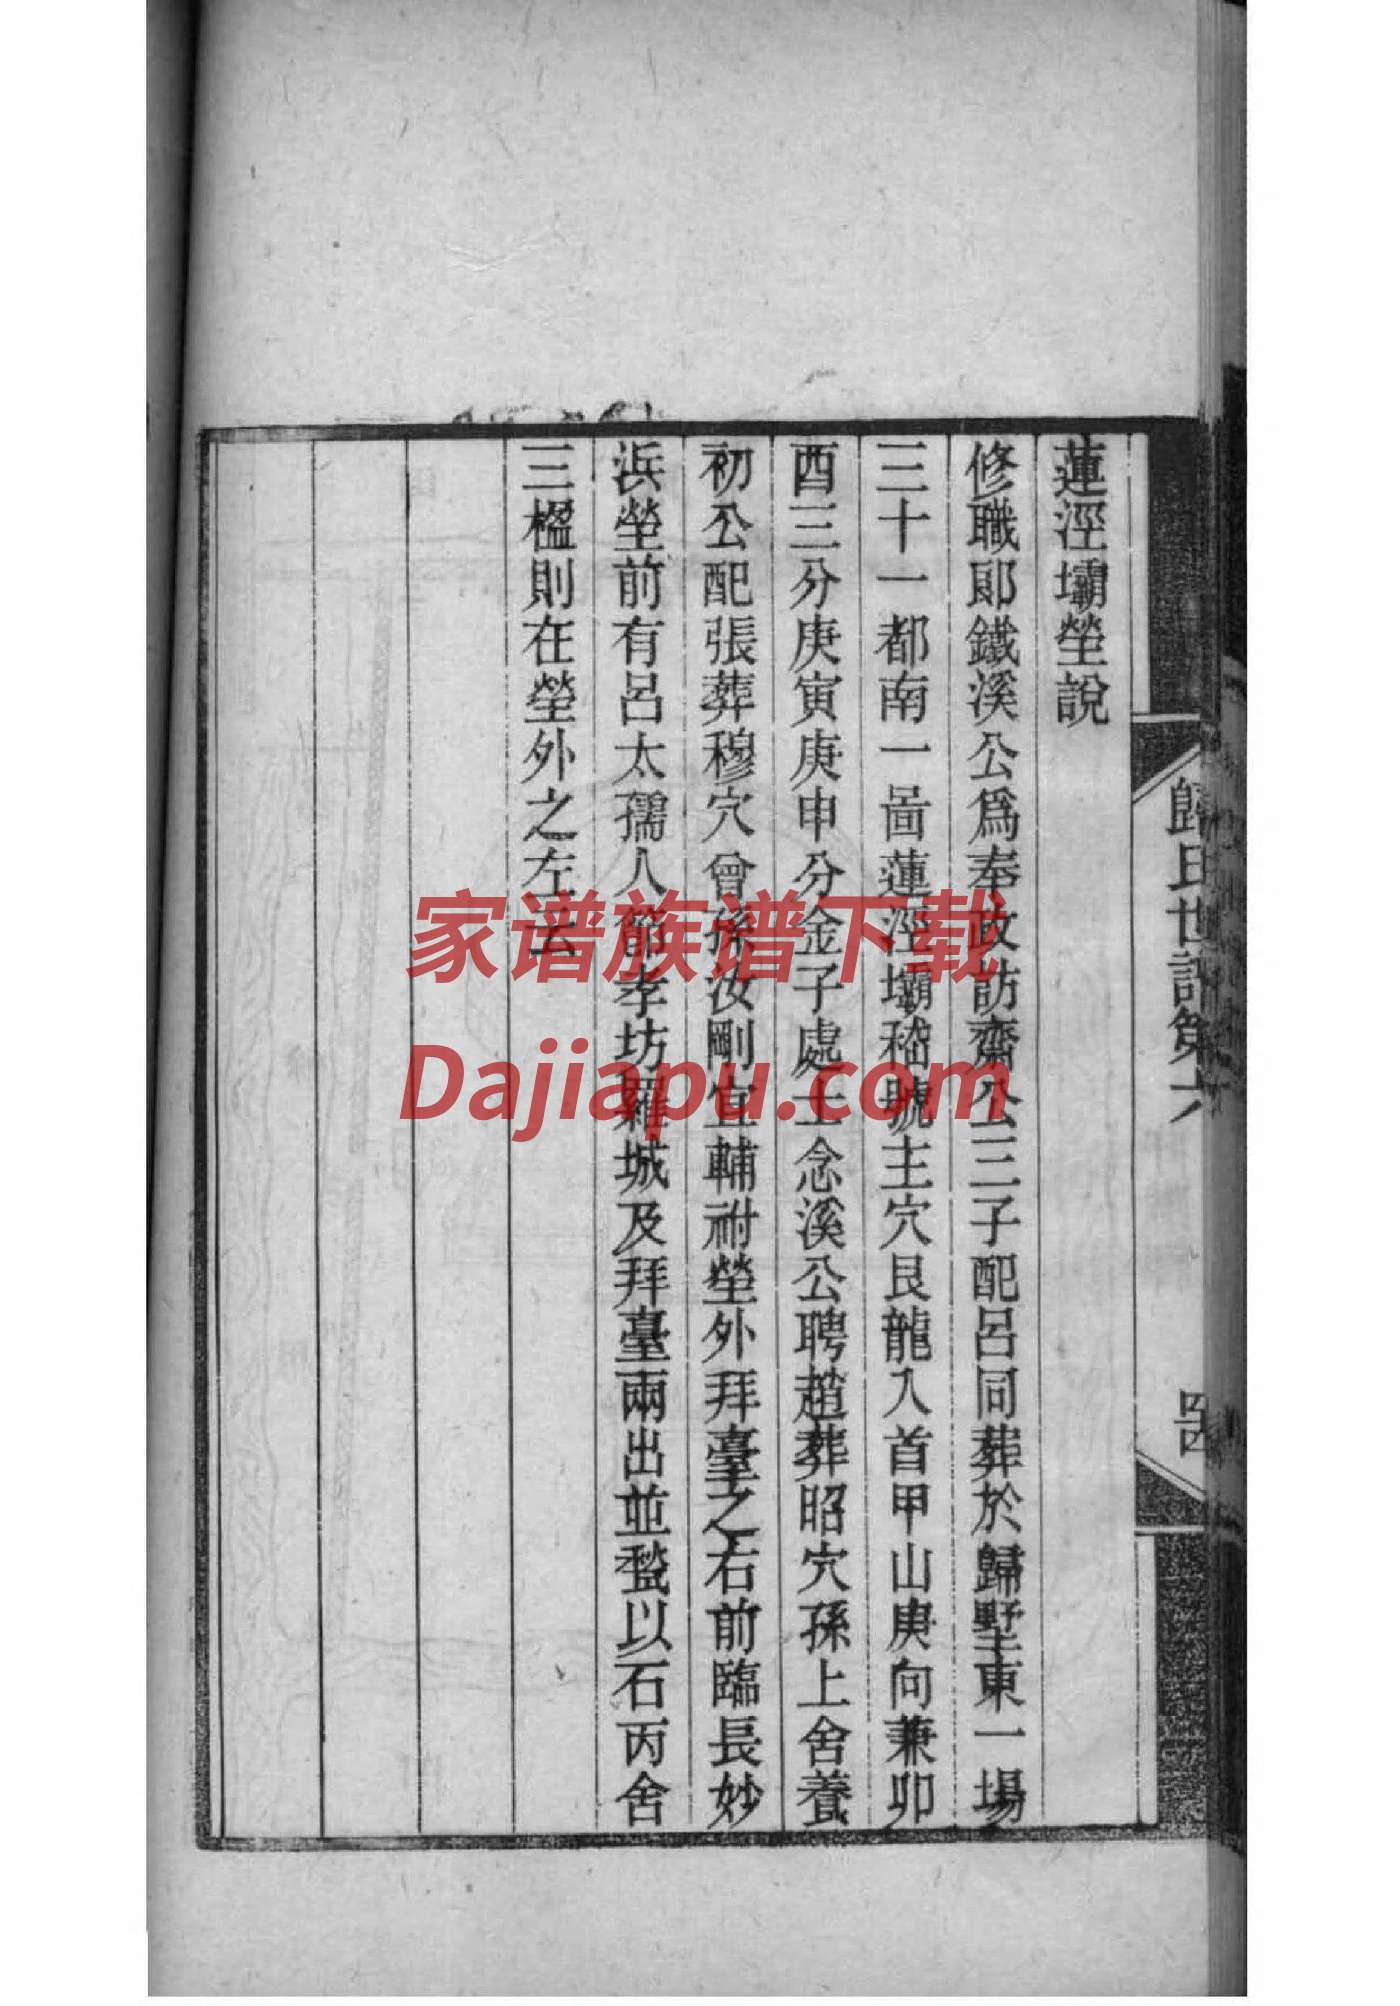 蓮涇壩塋說
修職郎鐵溪公爲奉政訪齋公三子配呂同葬於歸墅東一場
三十一都南一啚蓮涇壩稽號主穴艮龍入首甲山庚向兼卯
酉三分庚寅庚申分金子處士念溪公聘趙葬昭穴孫上舍養
初公配張葬穆穴曾孫汝剛宜輔祔塋外拜臺之右前臨長妙
浜塋前有呂太孺人節孝坊羅城及拜臺兩出並甃以石丙舍
三楹則在塋外之左云
歸氏世譜第六
家谱族谱下载
Dajiapu.com